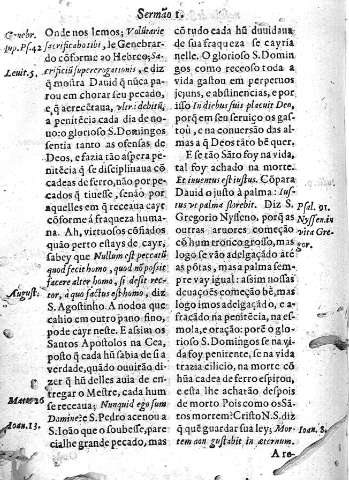 Sermão 1.
Genebr.
sup. Ps. 42
Leuit. 5,
August.
Mat. 26
Ioan. 13.
Onde nos lemos; Volũtarie
sacrificabo tibi, le Genebrar-
do cõforme ao Hebreo; Sa-
crificiũ supererogationis, e diz
q̃ mostra Dauid q̃ nũca pa-
rou em chorar seu pecado,
e q̃ acrecẽtaua, vltr: debitũ,
a penitẽcia cada dia de no-
uo: o glorioso S. Domingos
sentia tanto as ofensas de
Deos, e fazia tão aspera pe-
nitẽcia q̃ se disciplinaua cõ
cadeas de ferro, não por pe-
cados q̃ tiuesse, senão por
aquelles em q̃ receaua cayr
cõforme á fraqueza huma-
na. Ah, virtuosos cõfiados
quão perto estays de cayr,
sabey que Nullum est peccatũ
quod fecit homo, quod nõ possit
facere alter homo, si desit rec-
tor, à quo factus est homo, diz
S. Agostinho. A nodoa que
cahio em outro pano fino,
pode cayr neste. E assim os
Santos Apostolos na Cea,
posto q̃ cada hũ sabia de si a
verdade, quãdo ouuirão di-
zer q̃ hũ delles auia de en-
tregar o Mestre, cada hum
se receaua; Nunquid ego sum
Domine? e S. Pedro acenou a
S. Ioão que o soubesse, pare
cialhe grande pecado, mas
cõ tudo cada hũ duuidaua
de sua fraqueza se cayria
nelle. O glorioso S. Domin
gos como receoso toda a
vida gastou em perpetuos
jejuns, e abstinencias, e por
isso In diebus suis placuit Deo,
porq̃ em seu seruiço os gas-
tou, e na conuersão das al-
mas a q̃ Deos tãto bẽ quer.
E se tão Sãto foy na vida,
tal foy achado na morte.
Et inuentus est iustus. Cõpara
Dauid o justo à palma: Ius-
tus vt palma florebit. Diz S.
Gregorio Nysseno, porq̃ as
outras aruores começão
cõ hum tronco grosso, mas
logo se vão adelgaçãdo atè
as põtas, mas a palma sem-
pre vay igual: assim nossas
deuaçoẽs começão bẽ, mas
logo imos adelgaçãdo, e a-
fracãdo na penitẽcia, na es-
mola, e oração: porẽ o glo-
rioso S. Domingos se na vi-
da foy penitente, se na vida
trazia cilicio, na morte cõ
hũa cadea de ferro espirou,
e esta lhe acharão despois
de morto Pois como os Sã-
tos morrem? Cristo N.S. diz
q̃ quẽ guardar sua ley; Mor-
tem non gustabit in æternum.
Psal. 91.
Nyssen. in
vita Gre-
gor.
Ioan. 8.
A re-